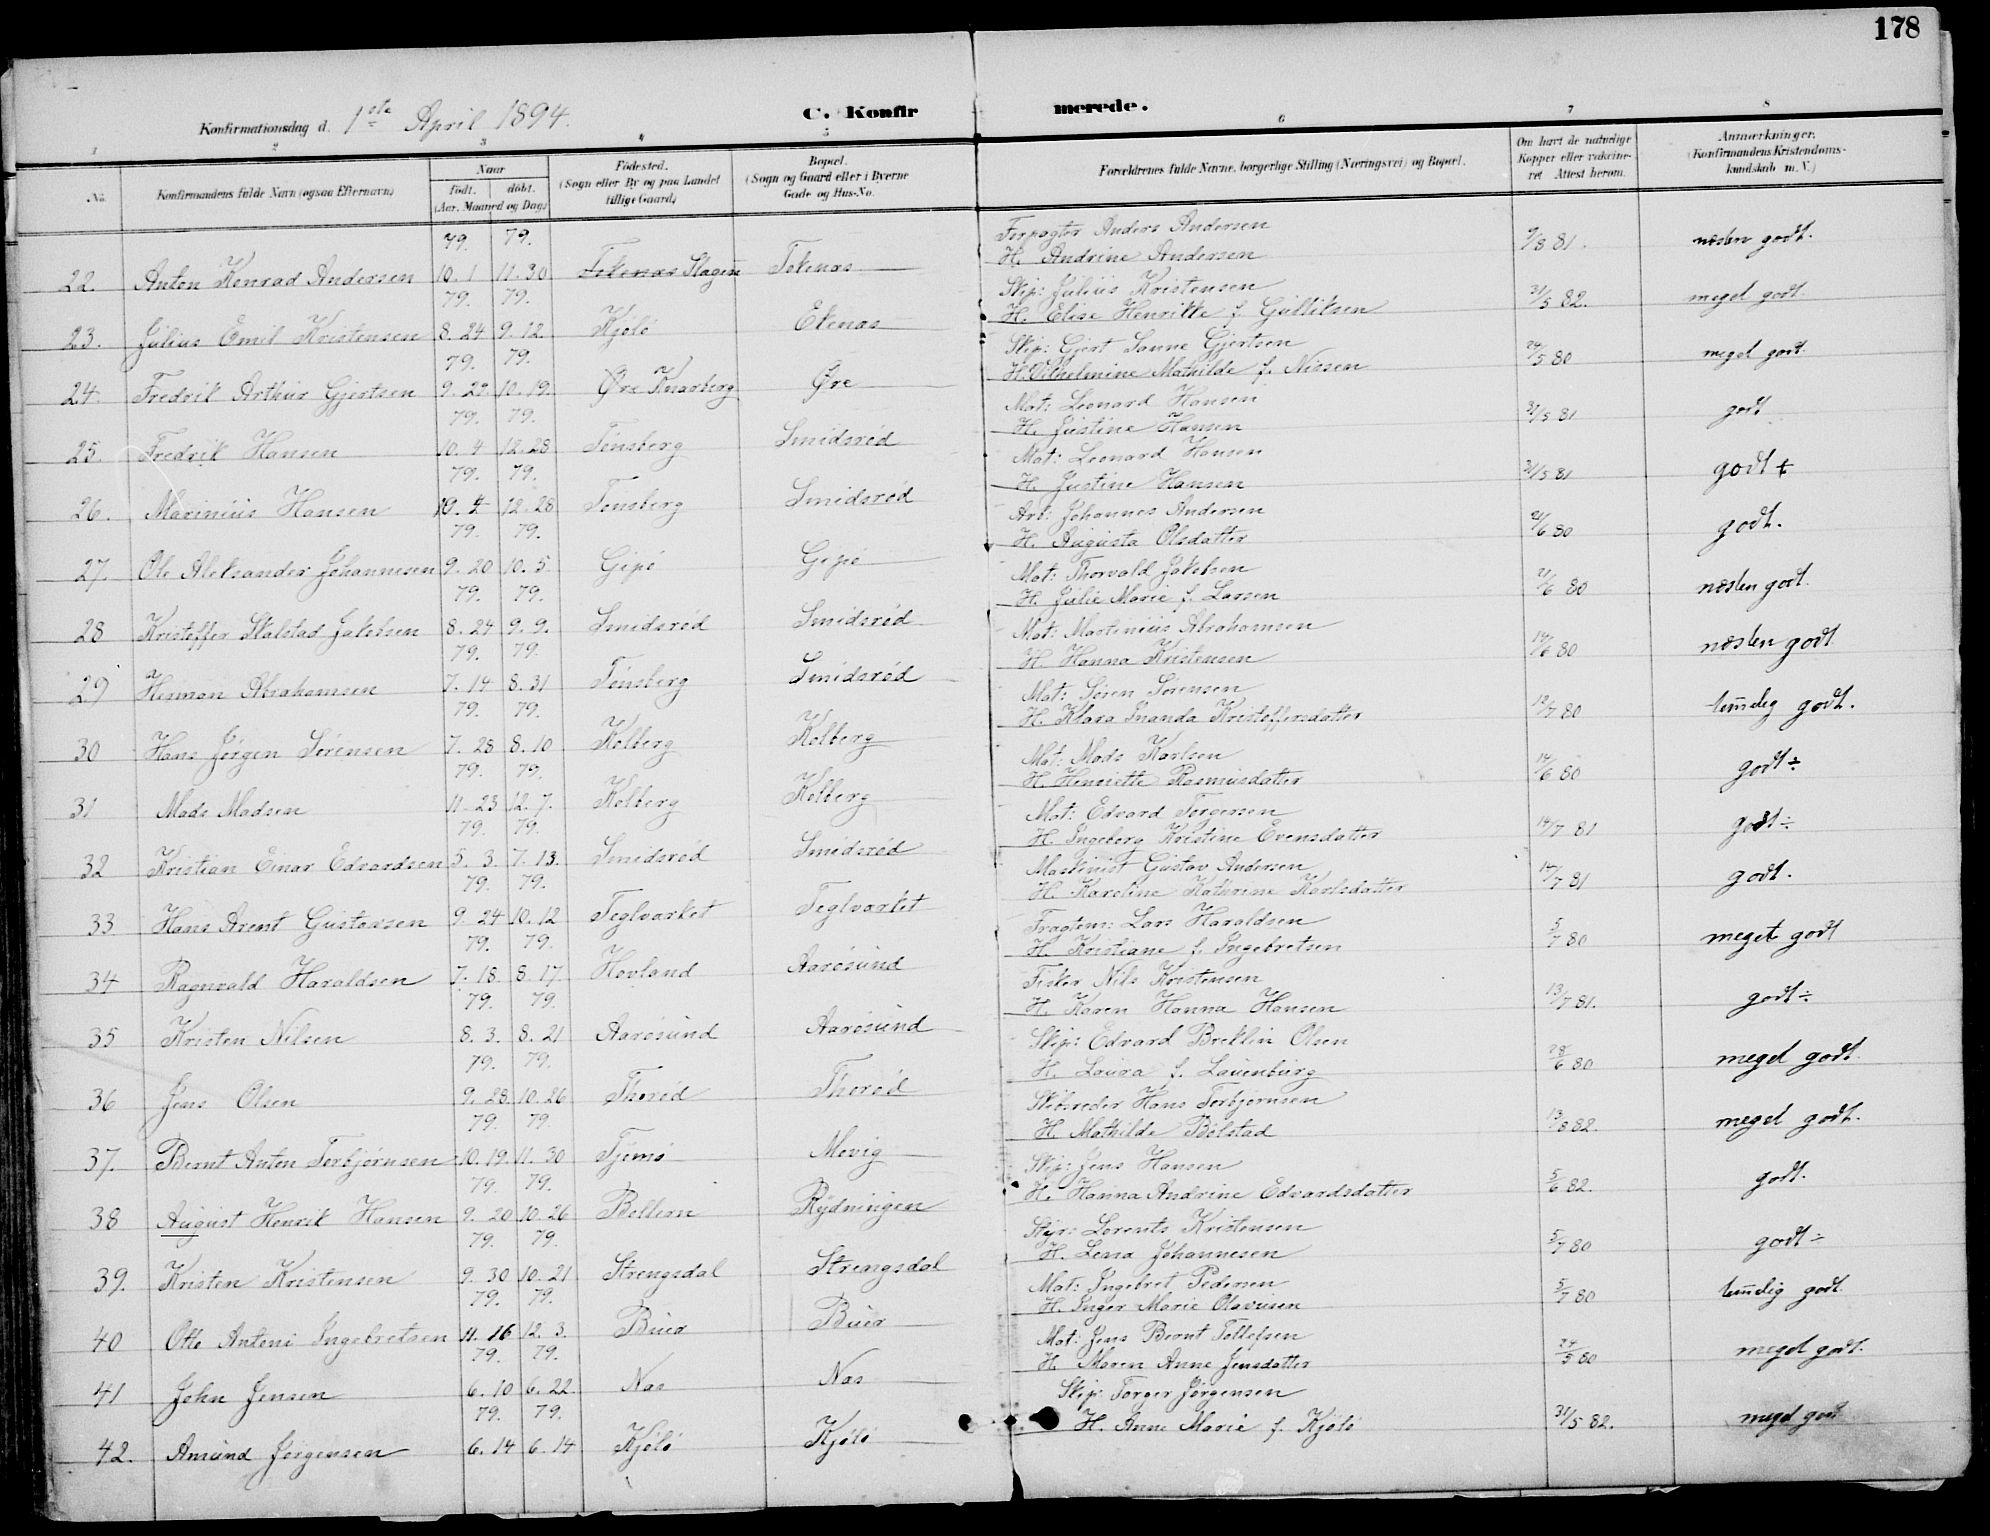 178
Konfirmationsdag d. 1ste April 1894.
C. Konfir merede.
1 2 3 4 5 6 7 8
No. Konfirmandens fulde Navn (ogsaa Efternavn) Naar født. døbt. (Aar, Maaned og Dag) Fødested. (Sogn eller By og paa Landet tillige Gaard) Bopæl. (Sogn og Gaard eller i Byerne Gade og Hus-No. Forældrenes fulde Navne, borgerlige Stilling (Næringsvei) og Bopæl. Om havt de naturlige Kopper eller vakcineret Attest herom. Anmærkninger. (Konfirmandens Kristendomskundskab m. V.)
79. 79. Forpagter Anders Andersen
22. Anton Konrad Andersen 10. 1 11. 30 Tekenæs Slagen Tekenæs H. Andrine Andersen 9/8 81. næsten godt.
79. 79. Skip: Julius Kristensen
23. Julius Emil Kristensen 8. 24 9. 12. Kjølø Ekenæs H. Elise Henrikke f. Gulliksen 31/5 82. meget godt.
79. 79. Skip: Gjert Sanne Gjertsen
24. Fredrik Arthur Gjertsen 9. 29 10. 19. Øre Knarberg Øre H. Vilhelmine Mathilde f. Nissen 24/5 80 meget godt.
79. 79. Mat: Leonard Hansen
25. Fredrik Hansen 10. 4 12. 28 Tønsberg Smidsrød H. Justine Hansen 31/5 81 godt
79. 79. Mat: Leonard Hansen
26. Marinius Hansen 10. 4 12. 28 Tønsberg Smidsrød H. Justine Hansen 31/5 81 godt +
79. 79. Arb: Johannes Andersen
27. Ole Aleksander Johannesen 9. 20 10. 5 Gipø Gipø H. Augusta Olsdatter 21/6 80 godt.
79. 79. Mat: Thorvald Jakobsen
28 Kristoffer Skalstad Jakobsen 8. 24 9. 9. Smidsrød Smidsrød H. Julie Marie f. Larsen 21/6 80 næsten godt.
79. 79. Mat: Martinius Abrahamsen
29 Herman Abrahamsen 7. 14 8. 31 Tønsberg Smidsrød H. Hanna Kristensen 14/6 80 næsten godt
79. 79. Mat: Søren Sørensen
30 Hans Jørgen Sørensen 7. 28 8. 10 Kolberg Kolberg H. Klara Inanda Kristoffersdatter 12/7 80 temmelig godt.
79. 79. Mat: Mads Karlsen
31 Mads Madsen 11. 23 12. 7. Kolberg Kolberg H. Henriette Rasmusdatter 14/6 80 godt ÷
79. 79. Mat: Edvard Torgersen
32 Kristian Einar Edvardsen 5. 3. 7. 13. Smidsrød Smidsrød H. Ingeborg Kristine Evensdatter 14/7 81 godt ÷
79. 79. Maskinist Gustav Andersen
33 Hans Arent Gustavsen 9. 24 10. 12 Teglværket Teglværket H. Karoline Kathrine Karlsdatter 14/7 81 godt.
79. 79. Fragtem: Lars Haraldsen
34 Ragnvald Haraldsen 7. 18. 8. 17. Hovland Aarøsund H. Kristiane f. Ingebretsen 5/7 80 meget godt
79. 79. Fisker Nils Kristensen
35 Kristen Nilsen 8. 3. 8. 21 Aarøsund Aarøsund H. Karen Hanna Hansen 13/7 81. godt ÷
79. 79. Skip: Edvard Breklin Olsen
36 Jens Olsen 9. 28. 10. 26 Thorød Thorød H. Laura f. Lauenburg 28/6 80 meget godt.
79. 79. Skibsreder Hans Torbjørnsen
37. Bernt Anton Torbjørnsen 10. 19. 11. 30 Tjømø Movig H. Mathilde Bolstad 13/8 82. meget godt.
79. 79. Skip: Jens Hansen
38 August Henrik Hansen 9. 20 10. 26 Bolleren Rydningen H. Hanna Andrine Edvardsdatter 5/6 82. godt.
79. 79. Styr: Lorents Kristensen
39. Kristen Kristensen 9. 30 10. 21 Strengsdal Strengsdal H. Lena Johannesen 5/7 80 godt ÷
79. 79. Mat: Ingebret Pedersen
40 Otto Antoni Ingebretsen 11. 16 12. 3. Buer Buer H. Inger Marie Olavusen 5/7 80 temmelig godt.
79. 79. Mat: Jens Bernt Tollefsen
41 John Jensen 6. 10 6. 22. Næs Næs H. Maren Anne Jensdatter 24/5 80 meget godt.
79. 79. Skip: Torger Jørgensen
42. Amund Jørgensen 6. 14 6. 14 Kjølø Kjølø H. Anne Marie f. Kjølø 31/5 82. meget godt